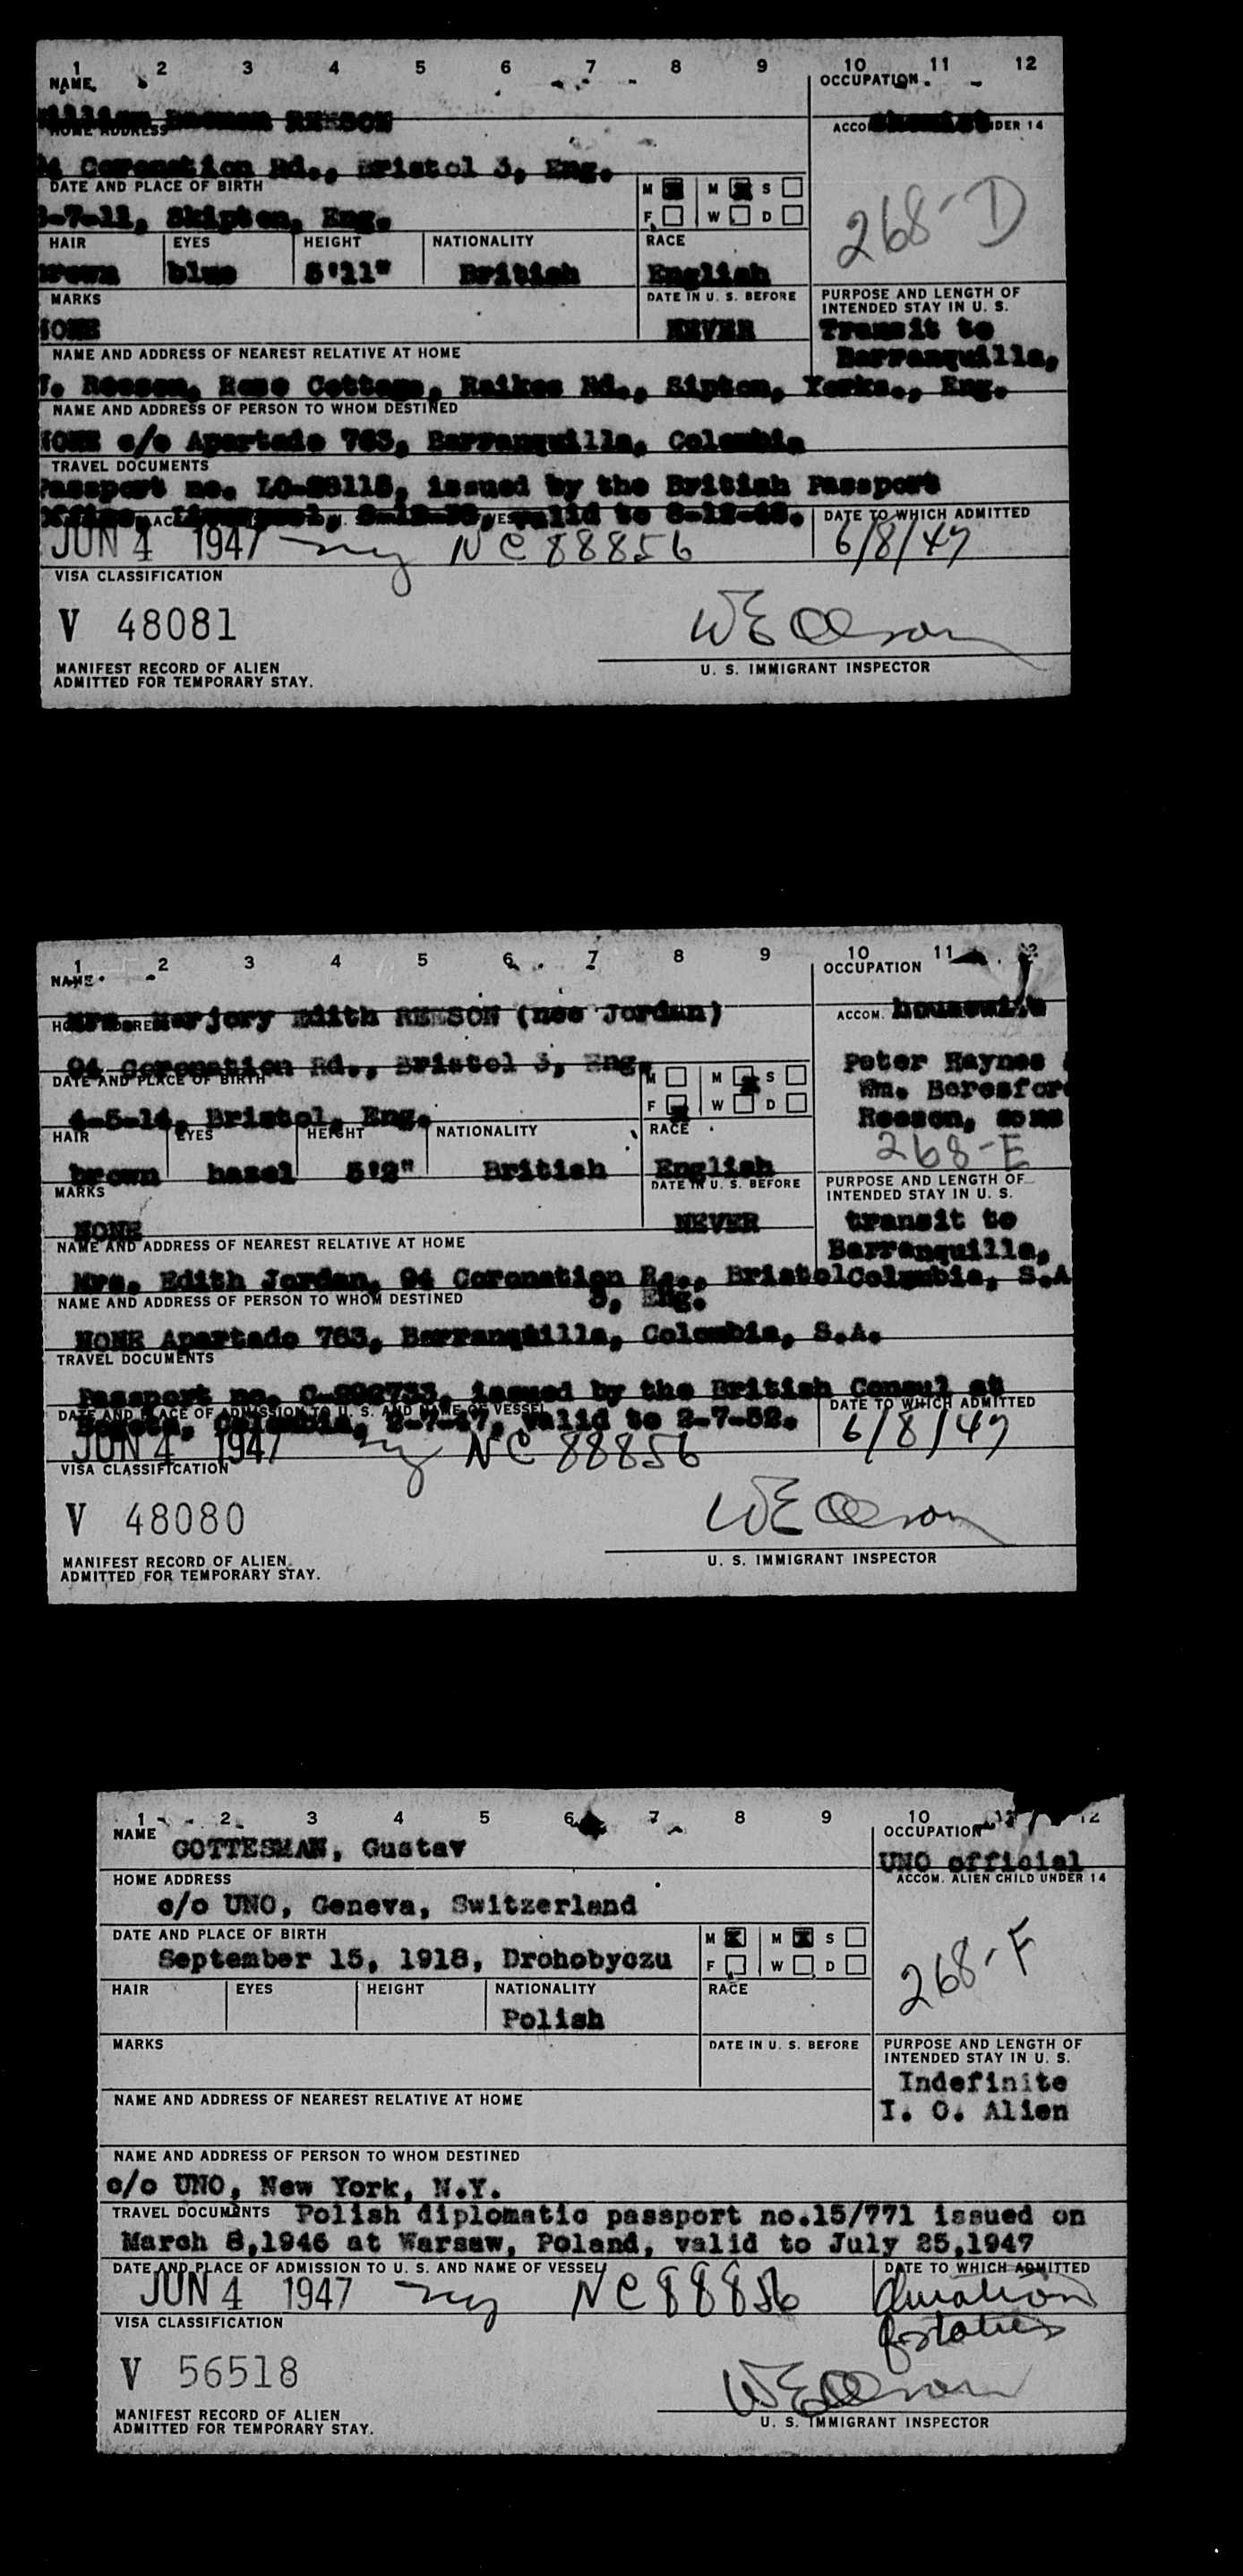 1 2 3 4 5 6 7 8 9 10 11 12
NAME OCCUPATION
REESON
HOME ADDRESS ACCO IDER 14
Coronation Rd., Bristol 3, Eng.
DATE AND PLACE OF BIRTH M M S
-7-11, Skipton, Eng. F W D
268-D
HAIR EYES HEIGHT NATIONALITY RACE
brown blue 5'11" British English
MARKS DATE IN U. S. BEFORE PURPOSE AND LENGTH OF
INTENDED STAY IN U. S.
NONE NEVER Transit to
Barranquilla,
NAME AND ADDRESS OF NEAREST RELATIVE AT HOME
Reeson, Rose Cottage, Raikes Rd., Sipton, Yorks., Eng.
NAME AND ADDRESS OF PERSON TO WHOM DESTINED
NONE c/o Apartado 763, Barranquilla, Colombia
TRAVEL DOCUMENTS
Passport no. issued by the British Passport
Office, Liverpool, valid to DATE TO WHICH ADMITTED
JUN 4 1947 ny NC 88856 6/8/47
VISA CLASSIFICATION
V 48081
W E Olson
MANIFEST RECORD OF ALIEN U. S. IMMIGRANT INSPECTOR
ADMITTED FOR TEMPORARY STAY.
1 2 3 4 5 6 7 8 9 10 11 12
NAME OCCUPATION
Mrs. Marjory Edith REESON (nee Jordan) ACCOM. housewife
94 Coronation Rd., Bristol 3, Eng. Peter Haynes
DATE AND PLACE OF BIRTH M M S Wm. Beresford
4-5-14, Bristol, Eng. F W D Reeson, sons
HAIR EYES HEIGHT NATIONALITY RACE 268-E
brown hazel 5'2" British English
MARKS DATE IN U. S. BEFORE PURPOSE AND LENGTH OF
INTENDED STAY IN U. S.
NONE NEVER transit to
NAME AND ADDRESS OF NEAREST RELATIVE AT HOME Barranquilla,
Mrs. Edith Jordan, 94 Coronation Rd., Bristol Colombia, S.A
NAME AND ADDRESS OF PERSON TO WHOM DESTINED 3, Eng.
NONE Apartado 763, Barranquilla, Colombia, S.A.
TRAVEL DOCUMENTS
Passport no. issued by the British Consul at
DATE AND PLACE OF ADMISSION TO U. S. AND NAME OF VESSEL DATE TO WHICH ADMITTED
Bogota, Colombia, 2-7-47, valid to 2-7-52.
JUN 4 1947 ny NC 88856 6/8/47
VISA CLASSIFICATION
V 48080
W E Olson
MANIFEST RECORD OF ALIEN U. S. IMMIGRANT INSPECTOR
ADMITTED FOR TEMPORARY STAY.
1 2 3 4 5 6 7 8 9 10 11 12
NAME GOTTESMAN, Gustav OCCUPATION
UNO official
HOME ADDRESS ACCOM. ALIEN CHILD UNDER 14
c/o UNO, Geneva, Switzerland
DATE AND PLACE OF BIRTH M M S
September 15, 1918, Drohobyczu F W D
268-F
HAIR EYES HEIGHT NATIONALITY RACE
Polish
MARKS DATE IN U. S. BEFORE PURPOSE AND LENGTH OF
INTENDED STAY IN U. S.
Indefinite
NAME AND ADDRESS OF NEAREST RELATIVE AT HOME I. O. Alien
NAME AND ADDRESS OF PERSON TO WHOM DESTINED
c/o UNO, New York, N.Y.
TRAVEL DOCUMENTS Polish diplomatic passport no.15/771 issued on
March 8,1946 at Warsaw, Poland, valid to July 25,1947
DATE AND PLACE OF ADMISSION TO U. S. AND NAME OF VESSEL DATE TO WHICH ADMITTED
JUN 4 1947 ny NC 88856 duration
VISA CLASSIFICATION of status
V 56518
W E Olson
MANIFEST RECORD OF ALIEN U. S. IMMIGRANT INSPECTOR
ADMITTED FOR TEMPORARY STAY.